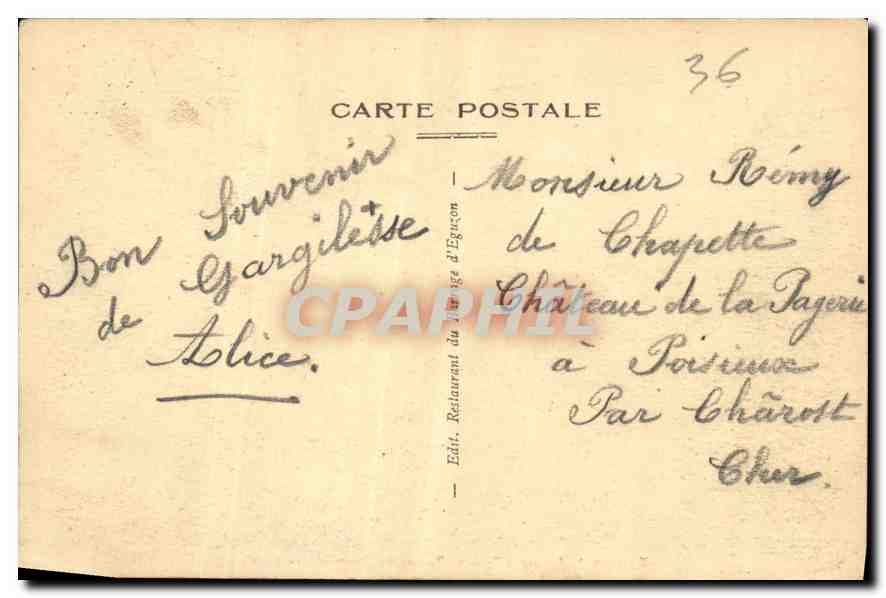 36
CARTE POSTALE
Bon Souvenir
de Gargilesse
Alice.
Edit. Restaurant du Barrage d'Eguzon
Monsieur Rémy
de Chapette
Château de la Pagerie
à Poisieux
Par Chârost
Cher.
CPAPHIL